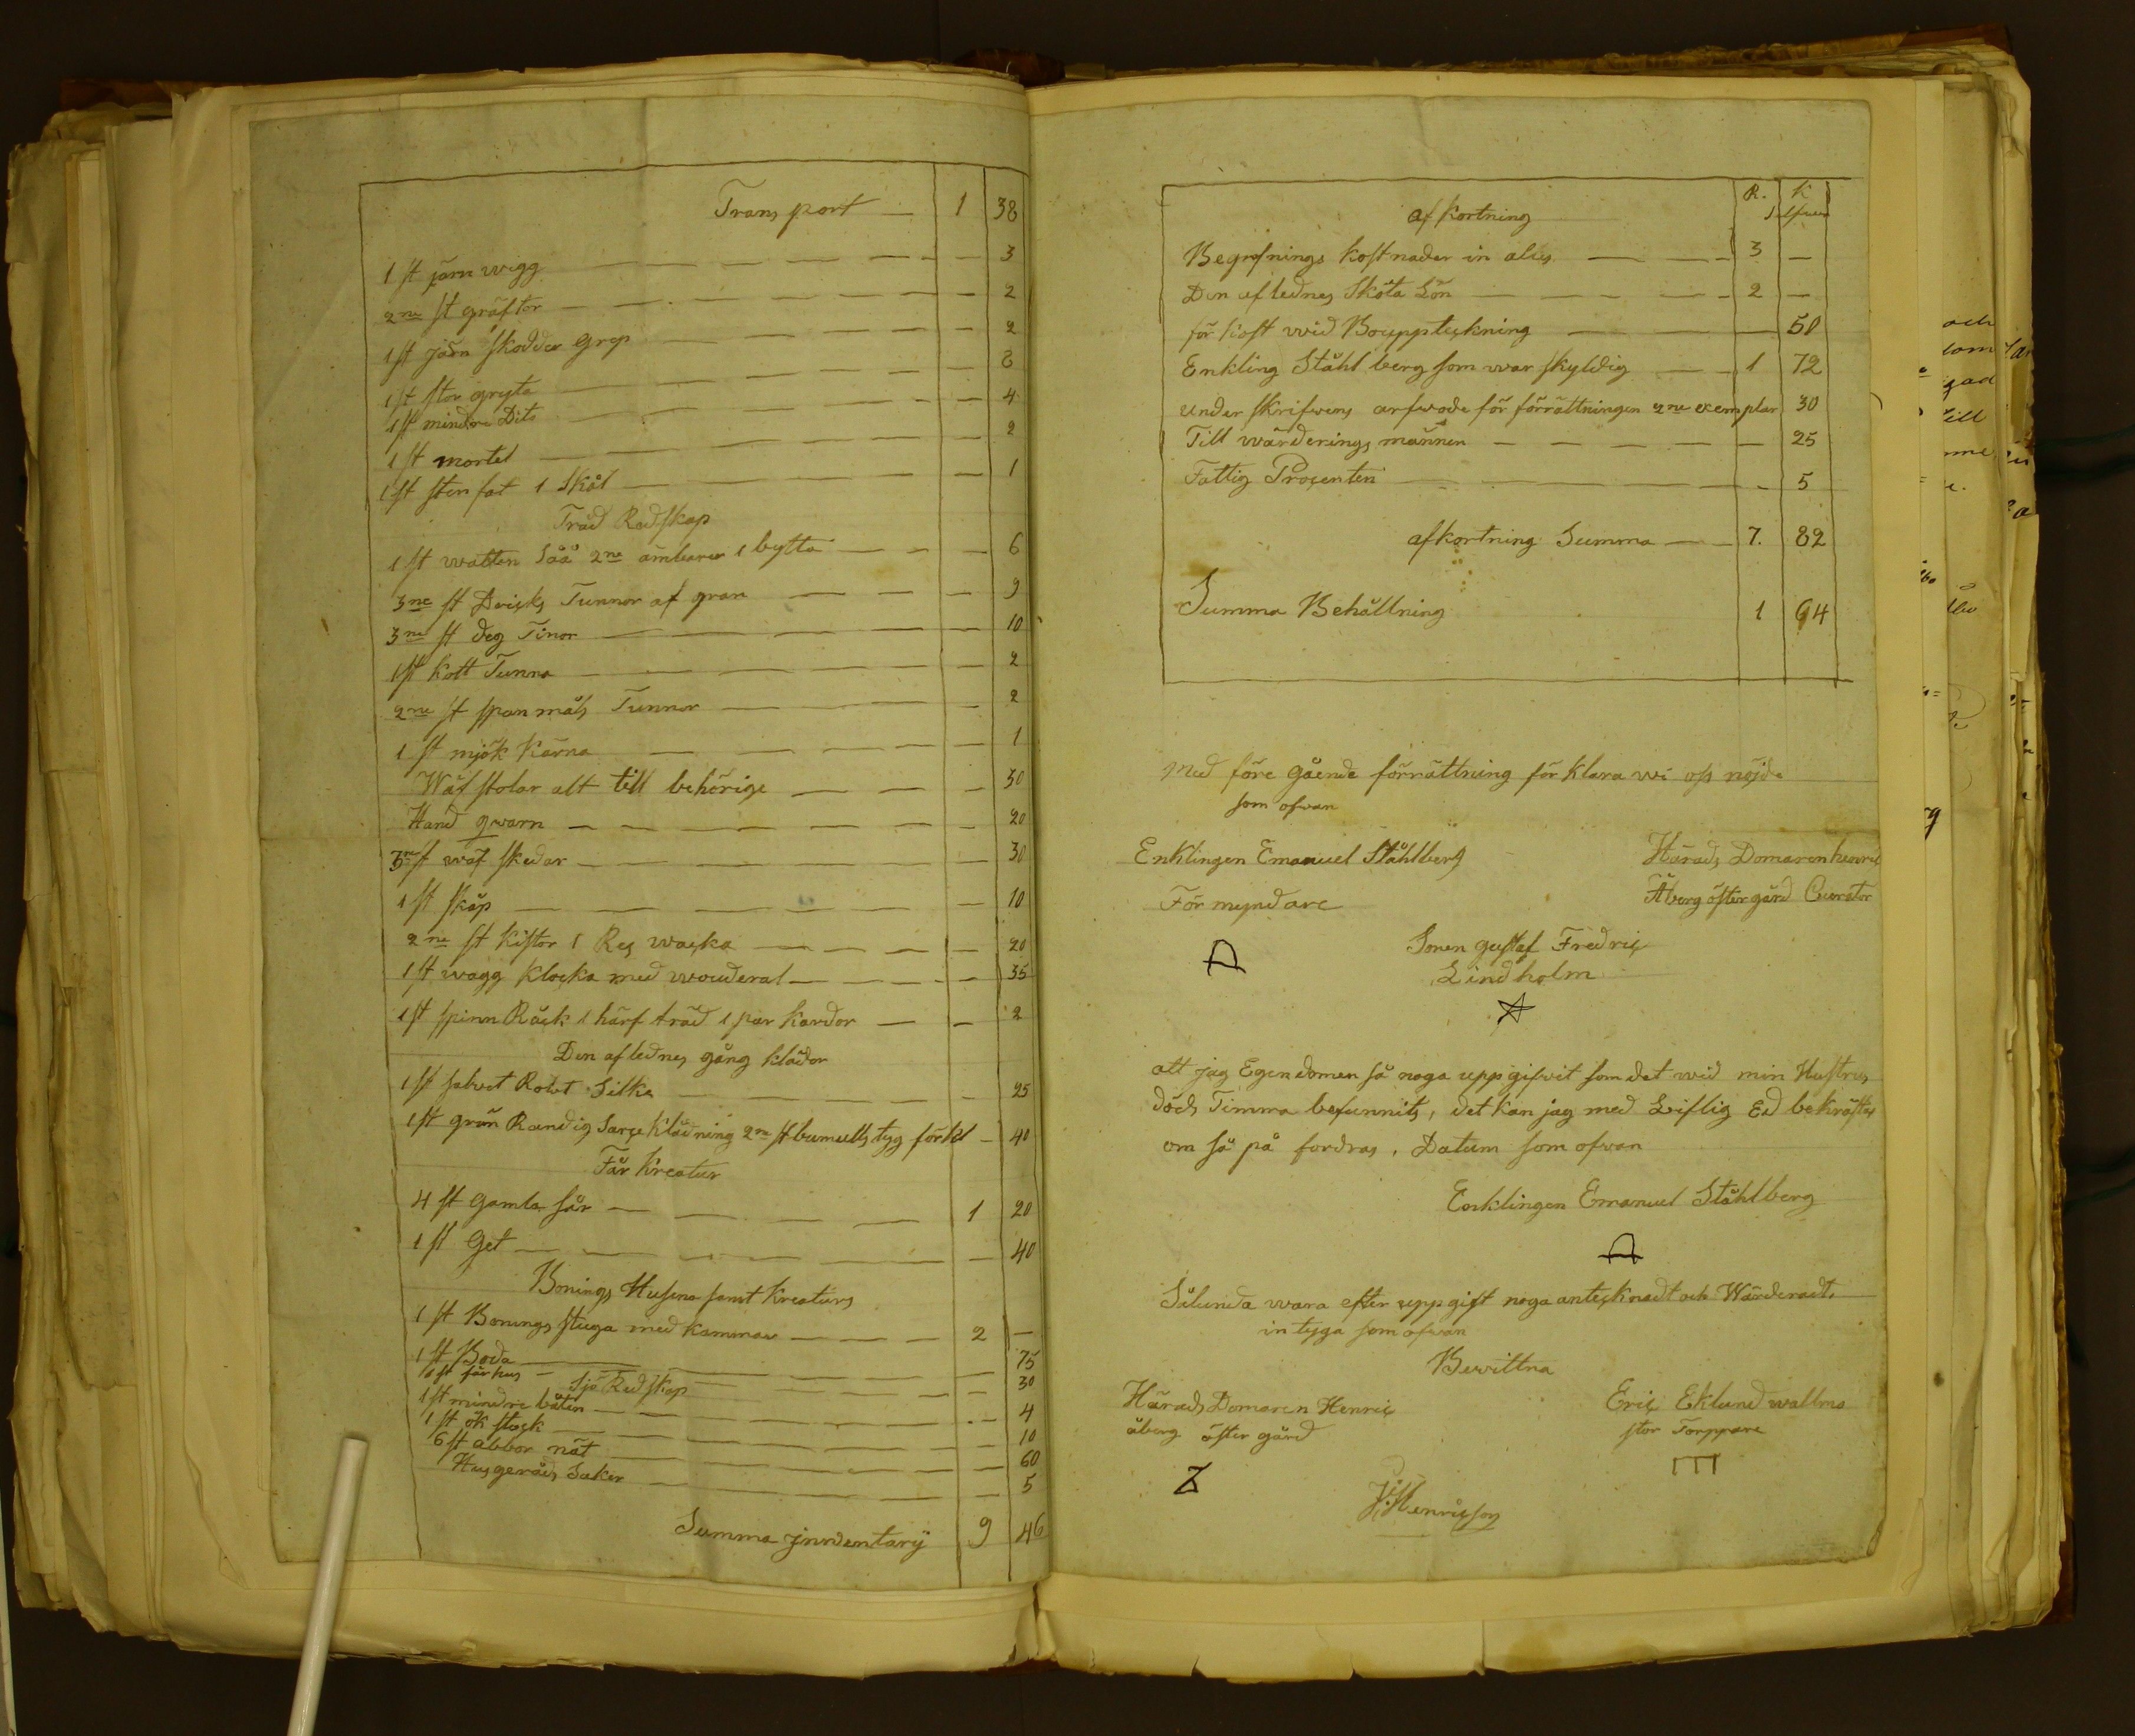 Transport — 1 38
1 st järn wägg — 3
2ne st gräftor — 2
1 st järn skodder grep — 2
1 st stor gryta — 8
1 st mindre Dito — 4
1 st mortel — 2
1 st sten fat 1 Skål — 1
Träd Redskap
1 st watten Såå 2ne ämbare 1 bytta — 6
3ne st Dricks Tunnor af gran — 9
3ne st deg Tinor — 10
1 st kött Tunna — 2
2ne st spanmåls Tunnor — 2
1 st mjök kärna — 1
Wäf stolar alt till behörige — 30
Hand qwarn — 20
3ne st wäf skedar — 30
1 st skåp — 10
2ne st kistor 1 Res wacka — 20
1 st wägg klocka med wouderal — 35
1 st spinn Råck 1 härf träd 1 par kardor — 2
Den aflednes gång kläder
1 st salvet Rolvt Silke — 25
1 st grön Randig Sarge klädning 2ne st bumulls tyg förkl — 40
Får Kreatur
4 st gamla får — 1 20
1 st Get — 40
Bonings Husena samt kreaturs
1 st Bonings stuga med kammar — 2 —
1 st Boda — 75
1 st får hus — 30
Sjö Redskap
1 st mindre båten — 4
1 st ök stock — 10
6 st abbor nät — 60
Husgeråds Saker — 5
Summa jnvdentarÿ 9 46
R. K
Silfwer
af kortning
Begrafnings kostnader in alles — 3 —
Den aflednes Sköta Lön — 2 —
för kost wid Bouppteckning — 50
Enkling Ståhlberg som war skyldig — 1 72
under skrifwens arfwode för förrättningen 2ne exemplar 30
Till wärderings männen — 25
Fattig Procenten — 5
afkortning Summa — 7. 82
Summa Behållning 1 64
Med före gående förrättning för klara wi oss nöjda
som ofwan
Enklingen Emanuel Ståhlberg
Härads Domaren henric
Förmyndare
Åberg östergård Curator
Sonen gustaf Fredric
Lindholm
att jag Egendomen så noga uppgifwit som det wid min Hustrus
döds Timma befunnits, det kan jag med Liflig Ed bekräftas
om så på fordras, Datum som ofwan
Enklingen Emanuel Ståhlberg
Sålunda wara efter uppgift noga antecknadt och Wärderadt.
in tyga som ofwan
Bewittna
Härads Domaren Henric
åberg öster gård
Eric Eklund wallmo
stor Torppare
J: Henricson